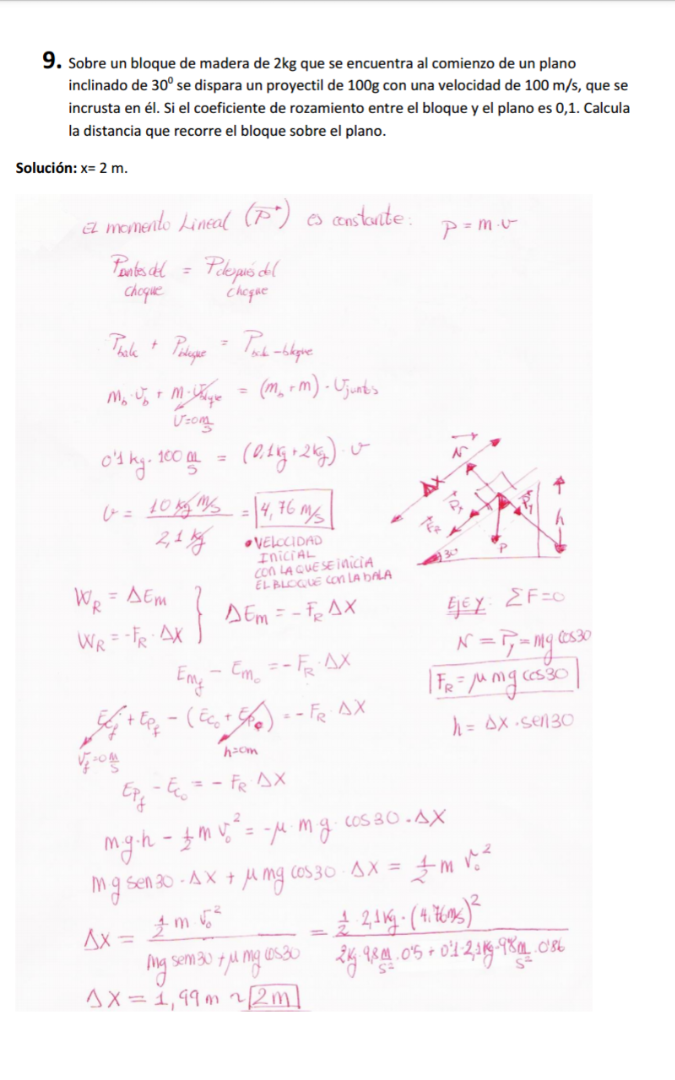 9. Sobre un bloque de madera de 2kg que se encuentra al comienzo de un plano
inclinado de 30⁰ se dispara un proyectil de 100g con una velocidad de 100 m/s, que se
incrusta en él. Si el coeficiente de rozamiento entre el bloque y el plano es 0,1. Calcula
la distancia que recorre el bloque sobre el plano.
Solución: x= 2 m.
El momento Lineal (P⃗) es constante: p = m·v
Pantes del choque = Pdespués del choque
Pbala + Pbloque = Pbala-bloque
m_b · v_b + M · v_bloque = (m_b + m) · v_juntos
v=0 m/s
0'1 kg · 100 m/s = (0,1kg + 2kg) · v
v = 10 kg m/s / 2,1 kg = 4,76 m/s
• VELOCIDAD
INICIAL
CON LA QUE SE INICIA
EL BLOQUE CON LA BALA
N
ΔX
P_y
F_R
P
30°
h
W_R = ΔEm
W_R = -F_R · ΔX } ΔEm = -F_R ΔX
Eje y: ΣF=0
N = P_y = mg cos30
F_R = μ mg cos30
h = ΔX · sen30
Em_f - Em_0 = -F_R · ΔX
Ec_f + Ep_f - (Ec_0 + Ep_0) = -F_R · ΔX
v_f=0 m/s h=0m
Ep_f - Ec_0 = -F_R ΔX
m·g·h - ½ m v_0² = -μ · m g · cos30 · ΔX
m g sen30 · ΔX + μ mg cos30 · ΔX = ½ m v_0²
ΔX = ½ m v_0² / (mg sen30 + μ mg cos30) = ½ · 2,1kg · (4,76m/s)² / (2kg · 9,8 m/s² · 0'5 + 0'1 · 2,1kg · 9'8 m/s² · 0'86)
ΔX = 1,99 m ~ 2m